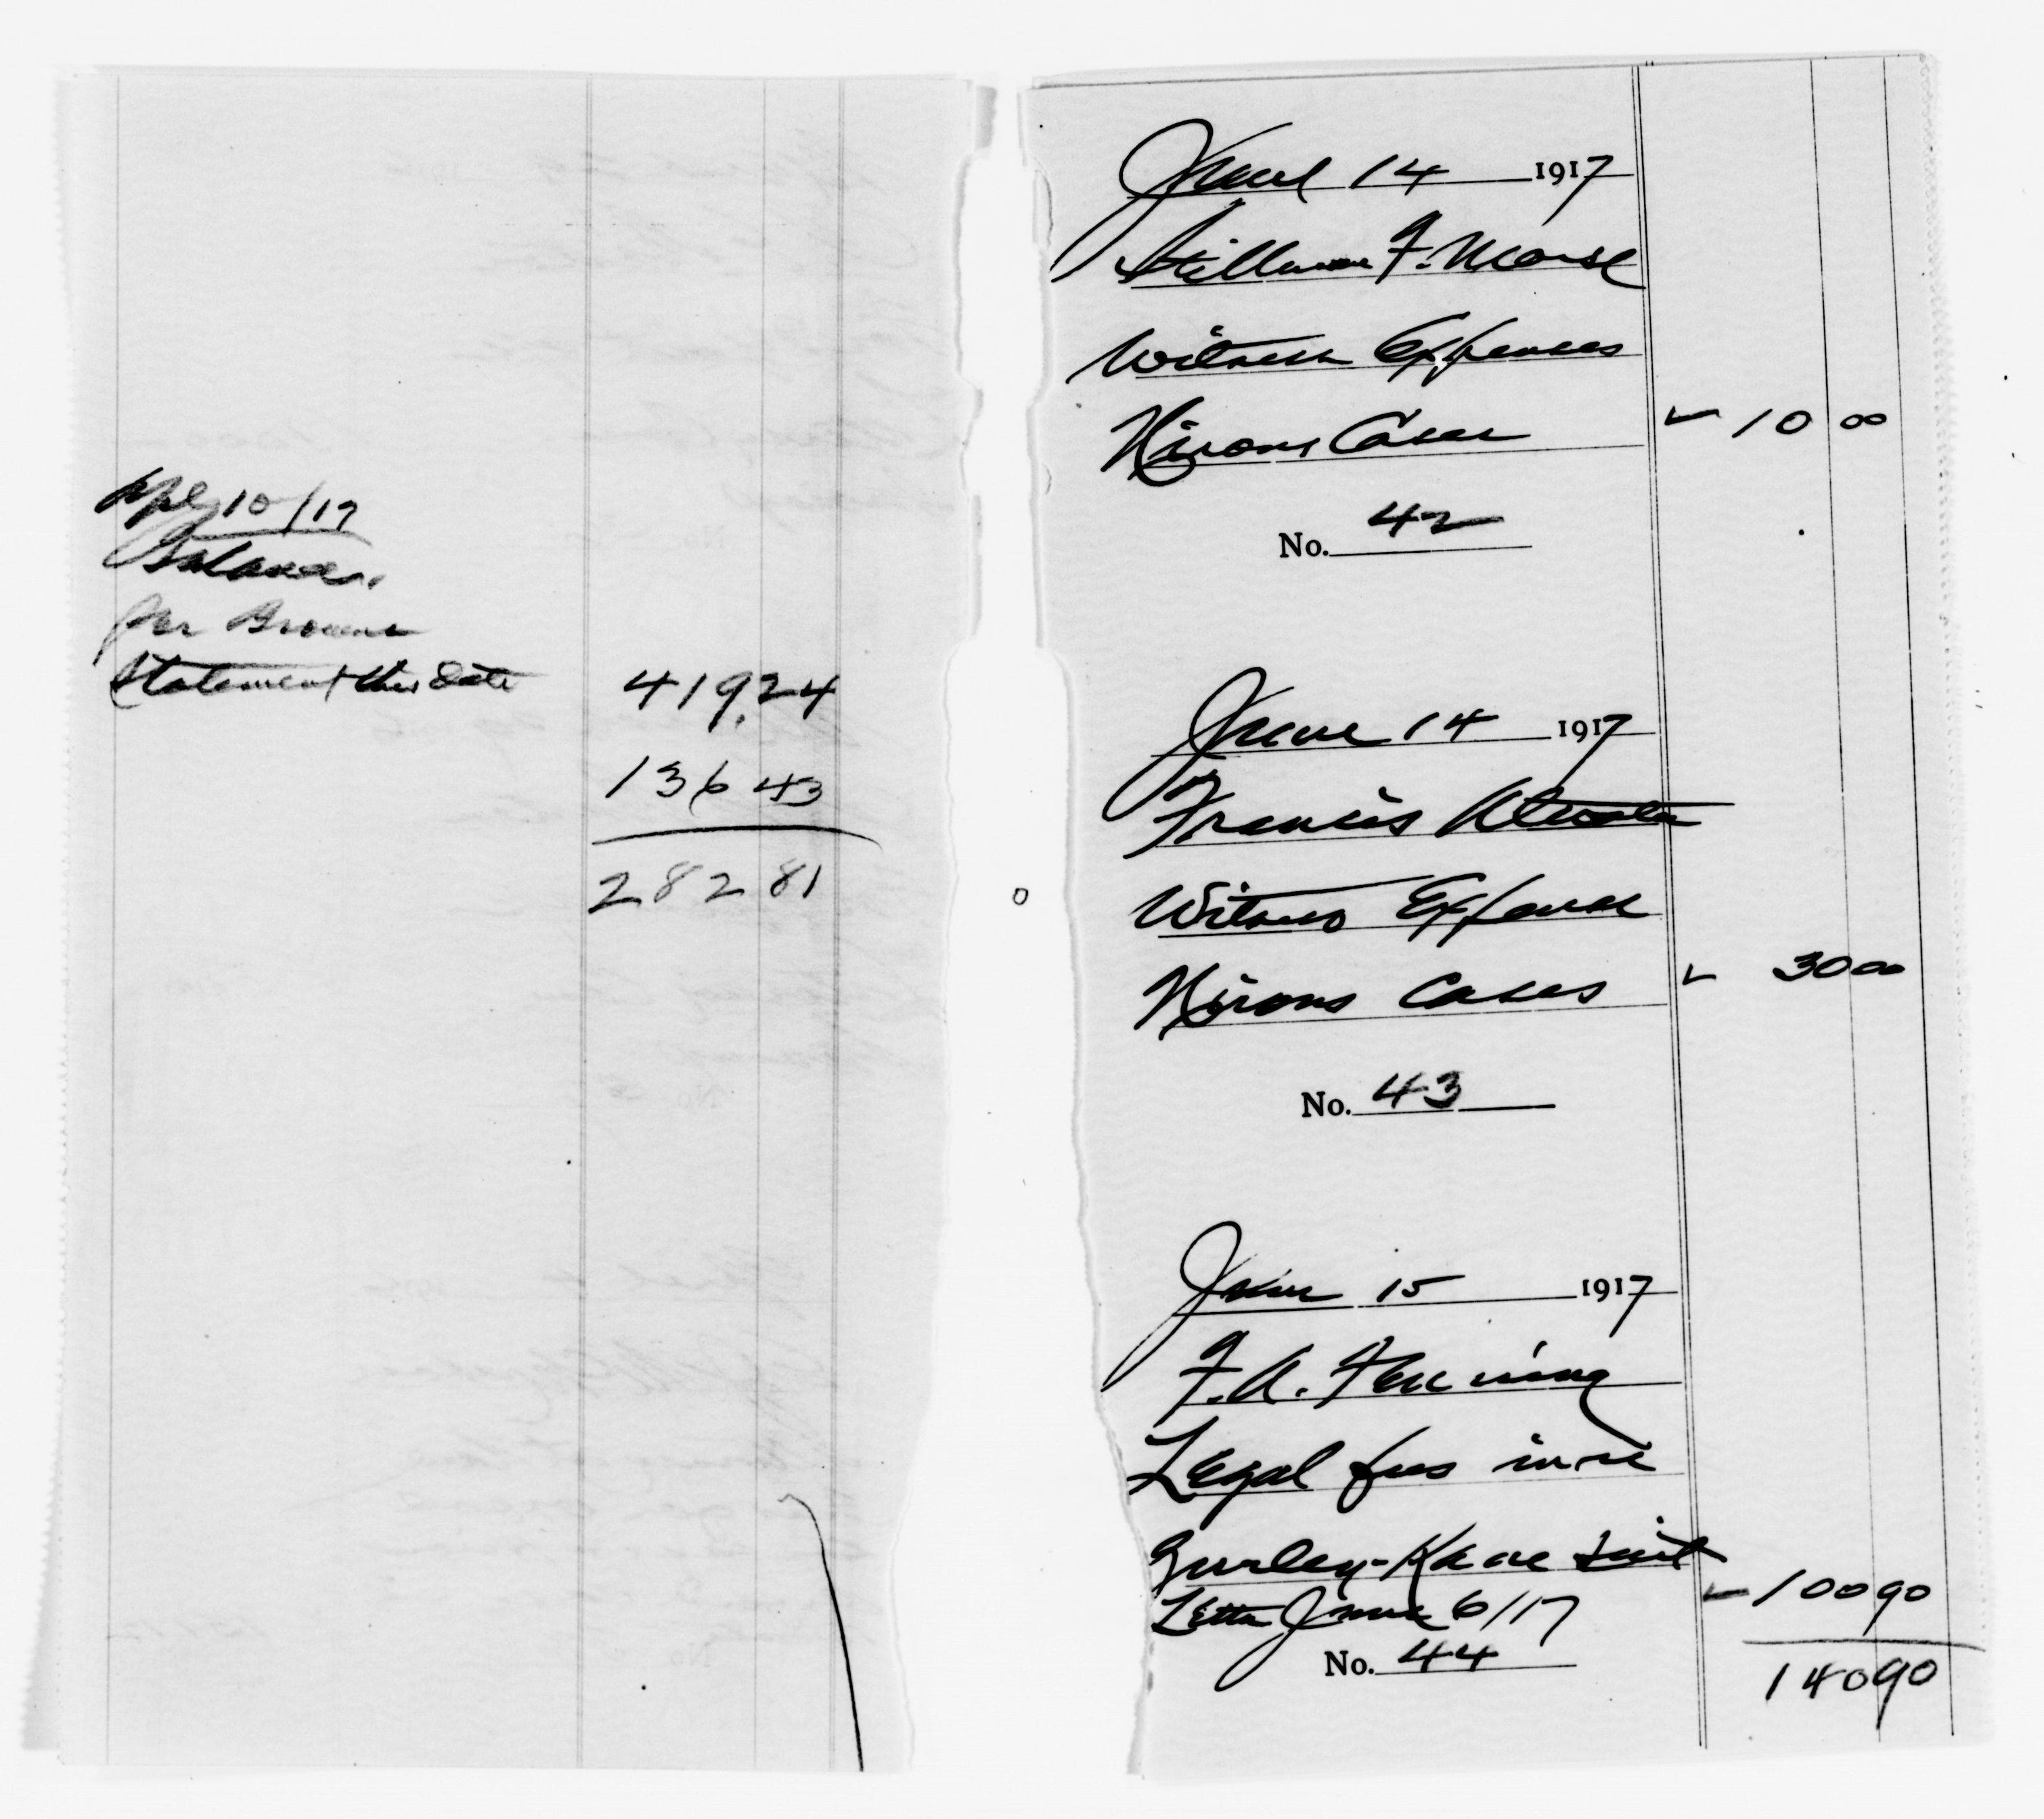 Apl 10/17
Balance
per Browns
Statement this date 419.24
136 43
282 81
June 14 1917
Stillman F. Morse
Witness Expenses
Nirons Cases ✓ 10 00
No. 42
June 14 1917
Francis Atwater
Witness Expense
Nirons Cases ✓ 30 00
No. 43
June 15 1917
F. A. Fenning
Legal fees in re
Gurley-Kane suit
Letter June 6/17 ✓ 100 90
No. 44
140 90